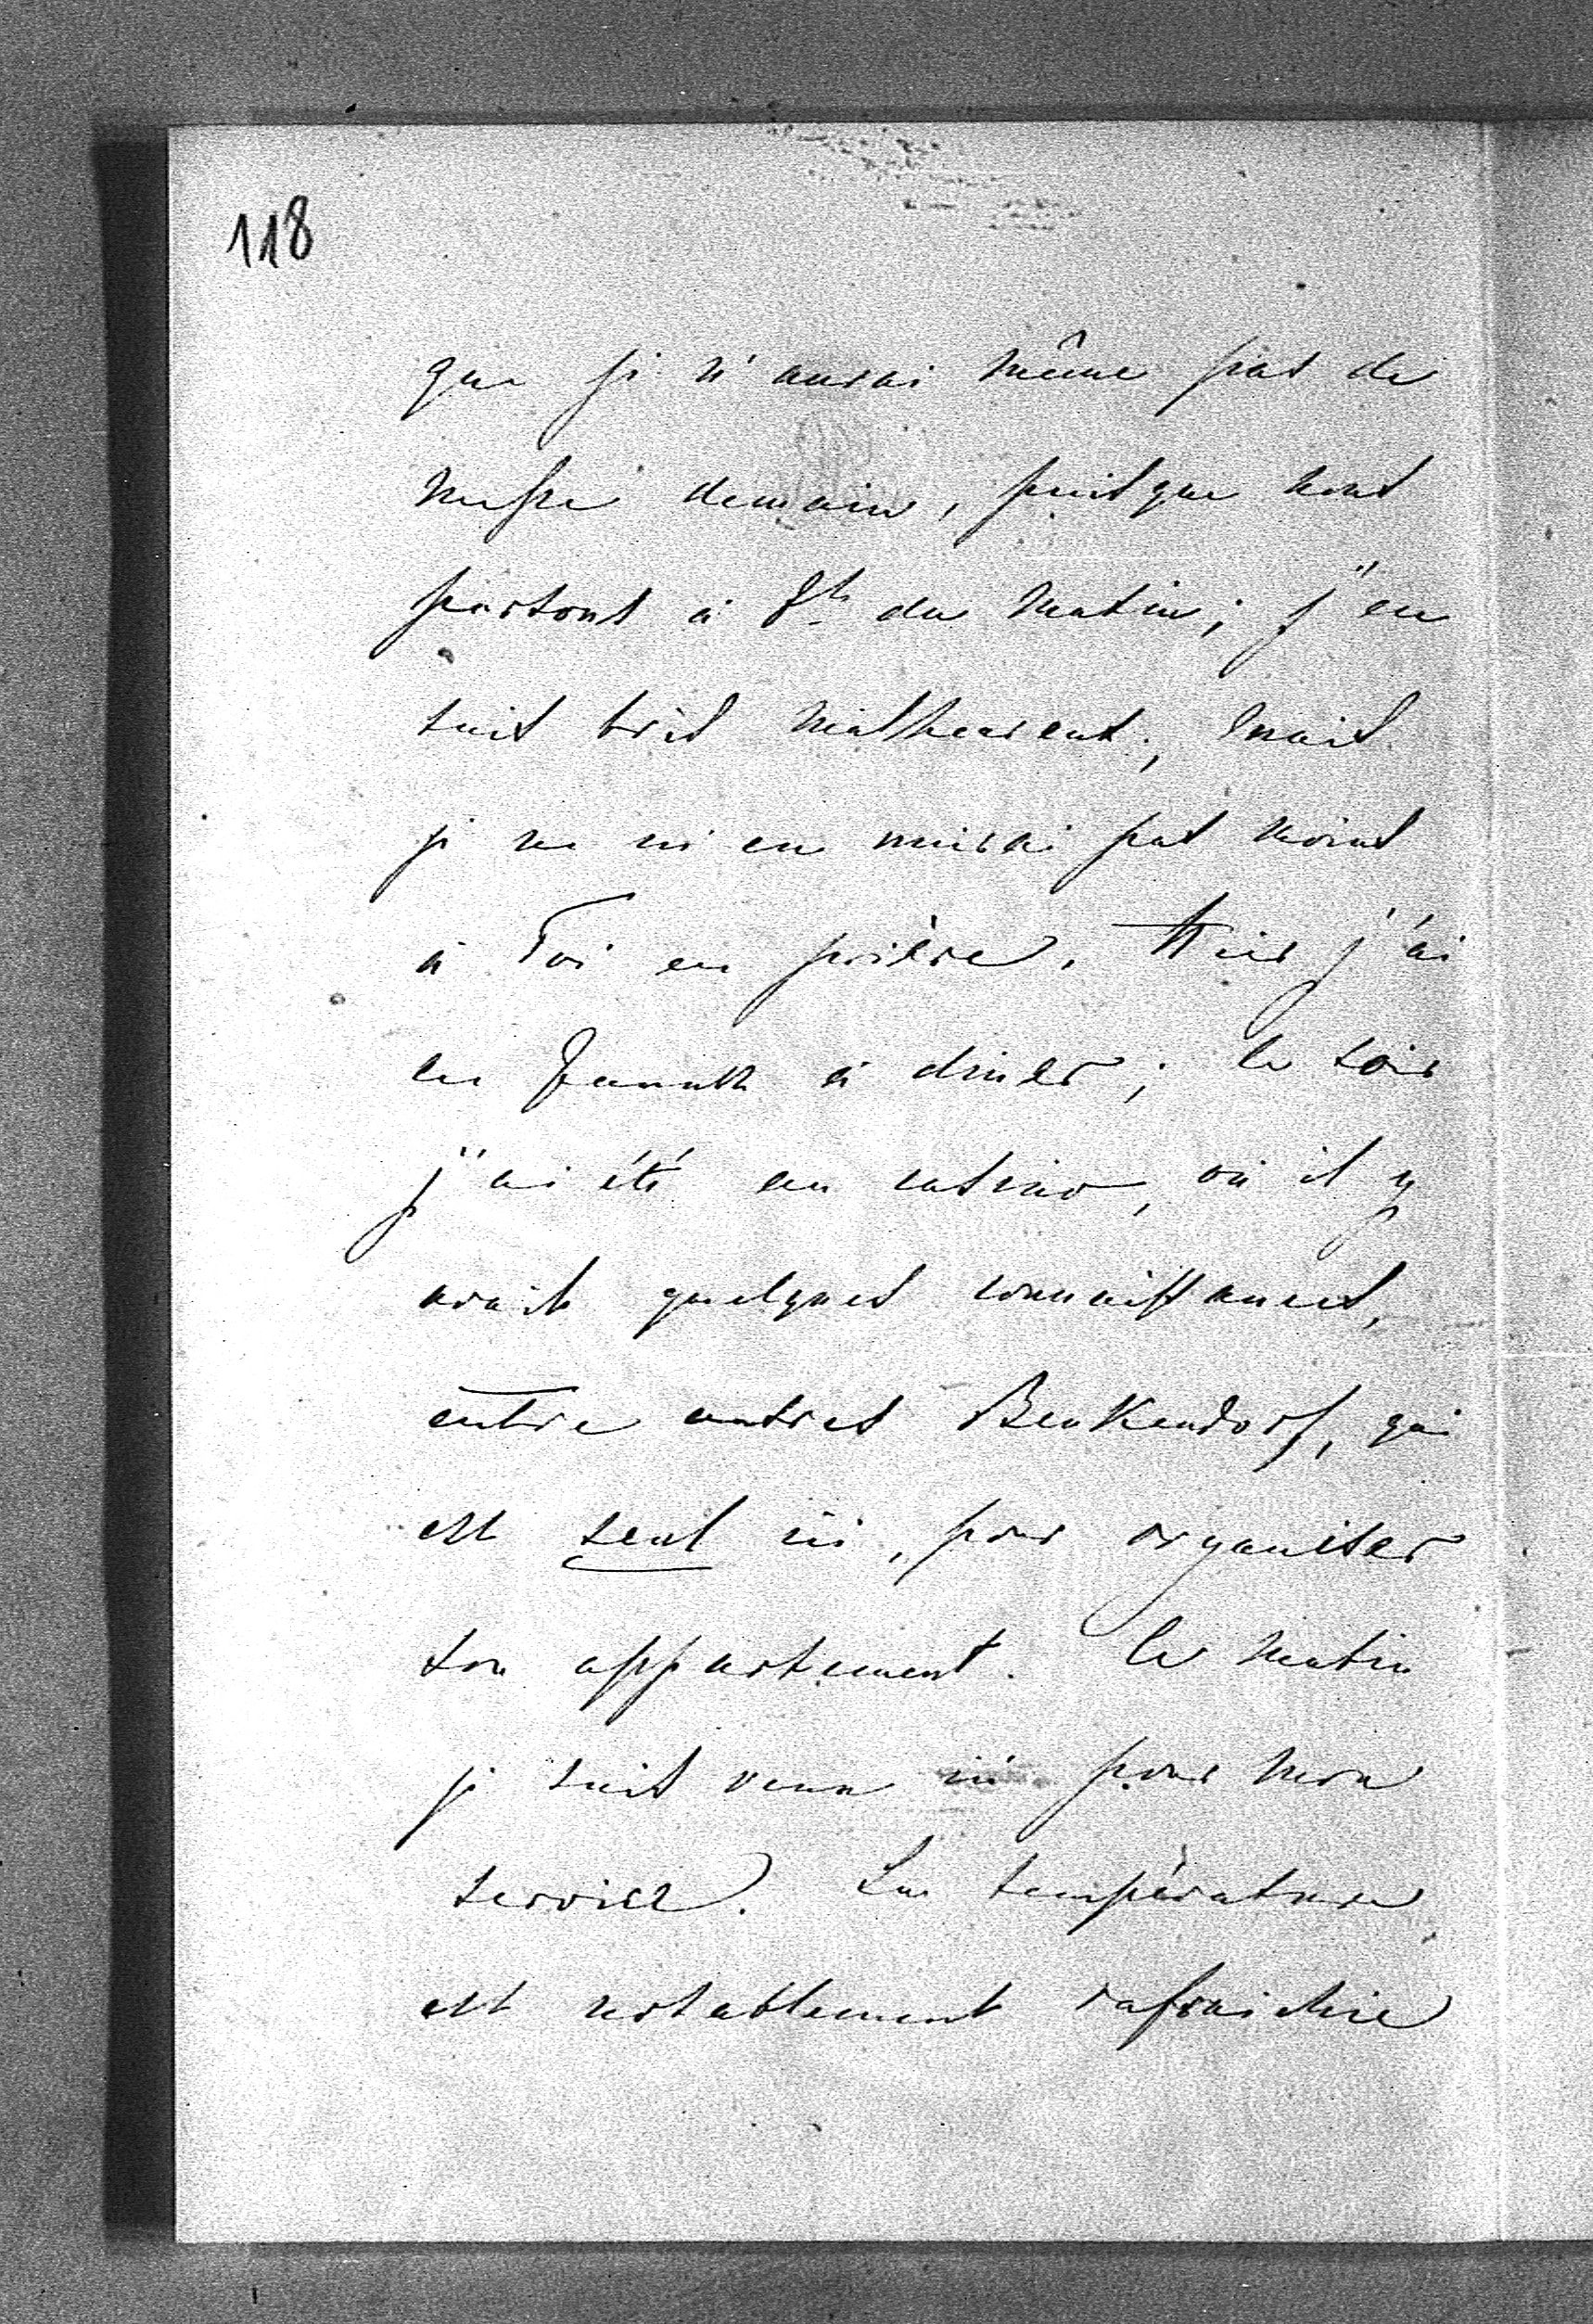 118
que je n'aurai même pas de
messe demain, puisque nous
partons à 8h du matin; j'en
suis très malheureux; mais
je ne m'en unirai pas moins
à Toi en prière. Hier j'ai
eu à diner; le soir
j'ai été au casino, où il y
avait quelques connaissances,
entre autres Benkendorf, qui
est seul ici, pour organiser
son appartement. Le matin
je suis venu ici pour mon
service. La température
est notablement rafraichie